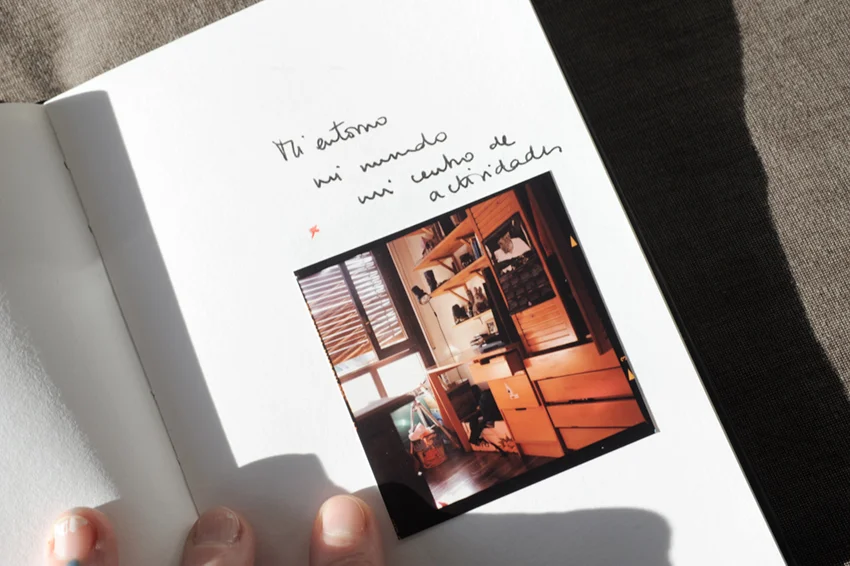 Mi entorno
mi mundo
mi centro de
actividades